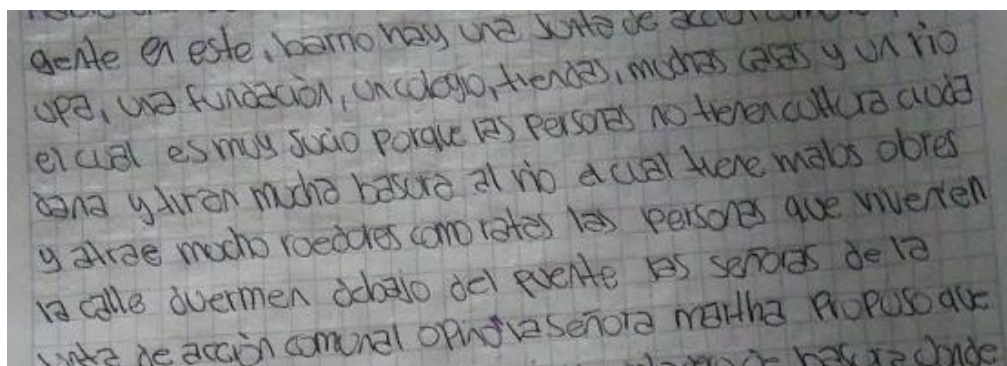 gente en este, barrio hay una Junta de accion
upa, una fundación, un colegio, tiendas, muchas casas y un rio
el cual es muy sucio porque las personas no tienen cultura ciuda
dana y tiran mucha basura al rio el cual tiene malos olores
y atrae mocho roedores como rates las personas que viven en
la calle duermen debajo del puente las señoras de la
junta de acción comunal opino la señora martha Propuso que
basura donde